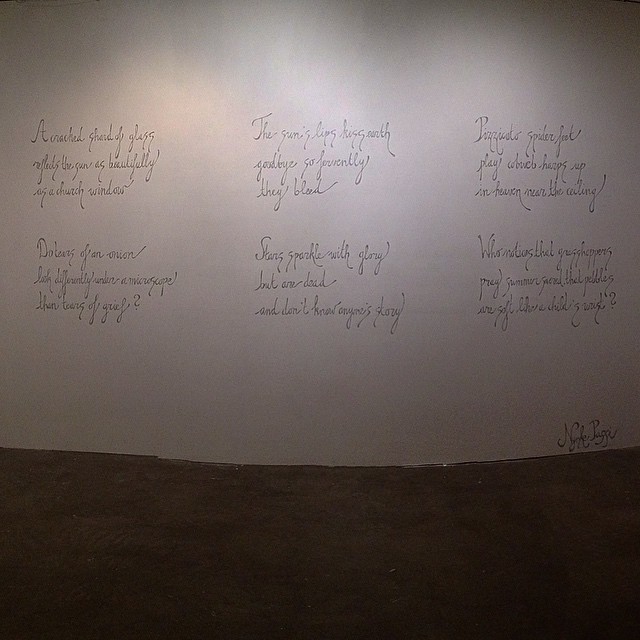 A cracked shard of glass
reflects the sun as beautifully
as a church window
Do tears of an onion
look differently under a microscope
than tears of grief?
The sun's lips kiss earth
goodbye so fervently
they bleed
Stars sparkle with glory
but are dead
and don't know anyone's story
Pizzicato spider feet
play which harps up
in heaven near the ceiling
Who notices that grasshoppers
pray, summer sand, that pebbles
are soft like a child's